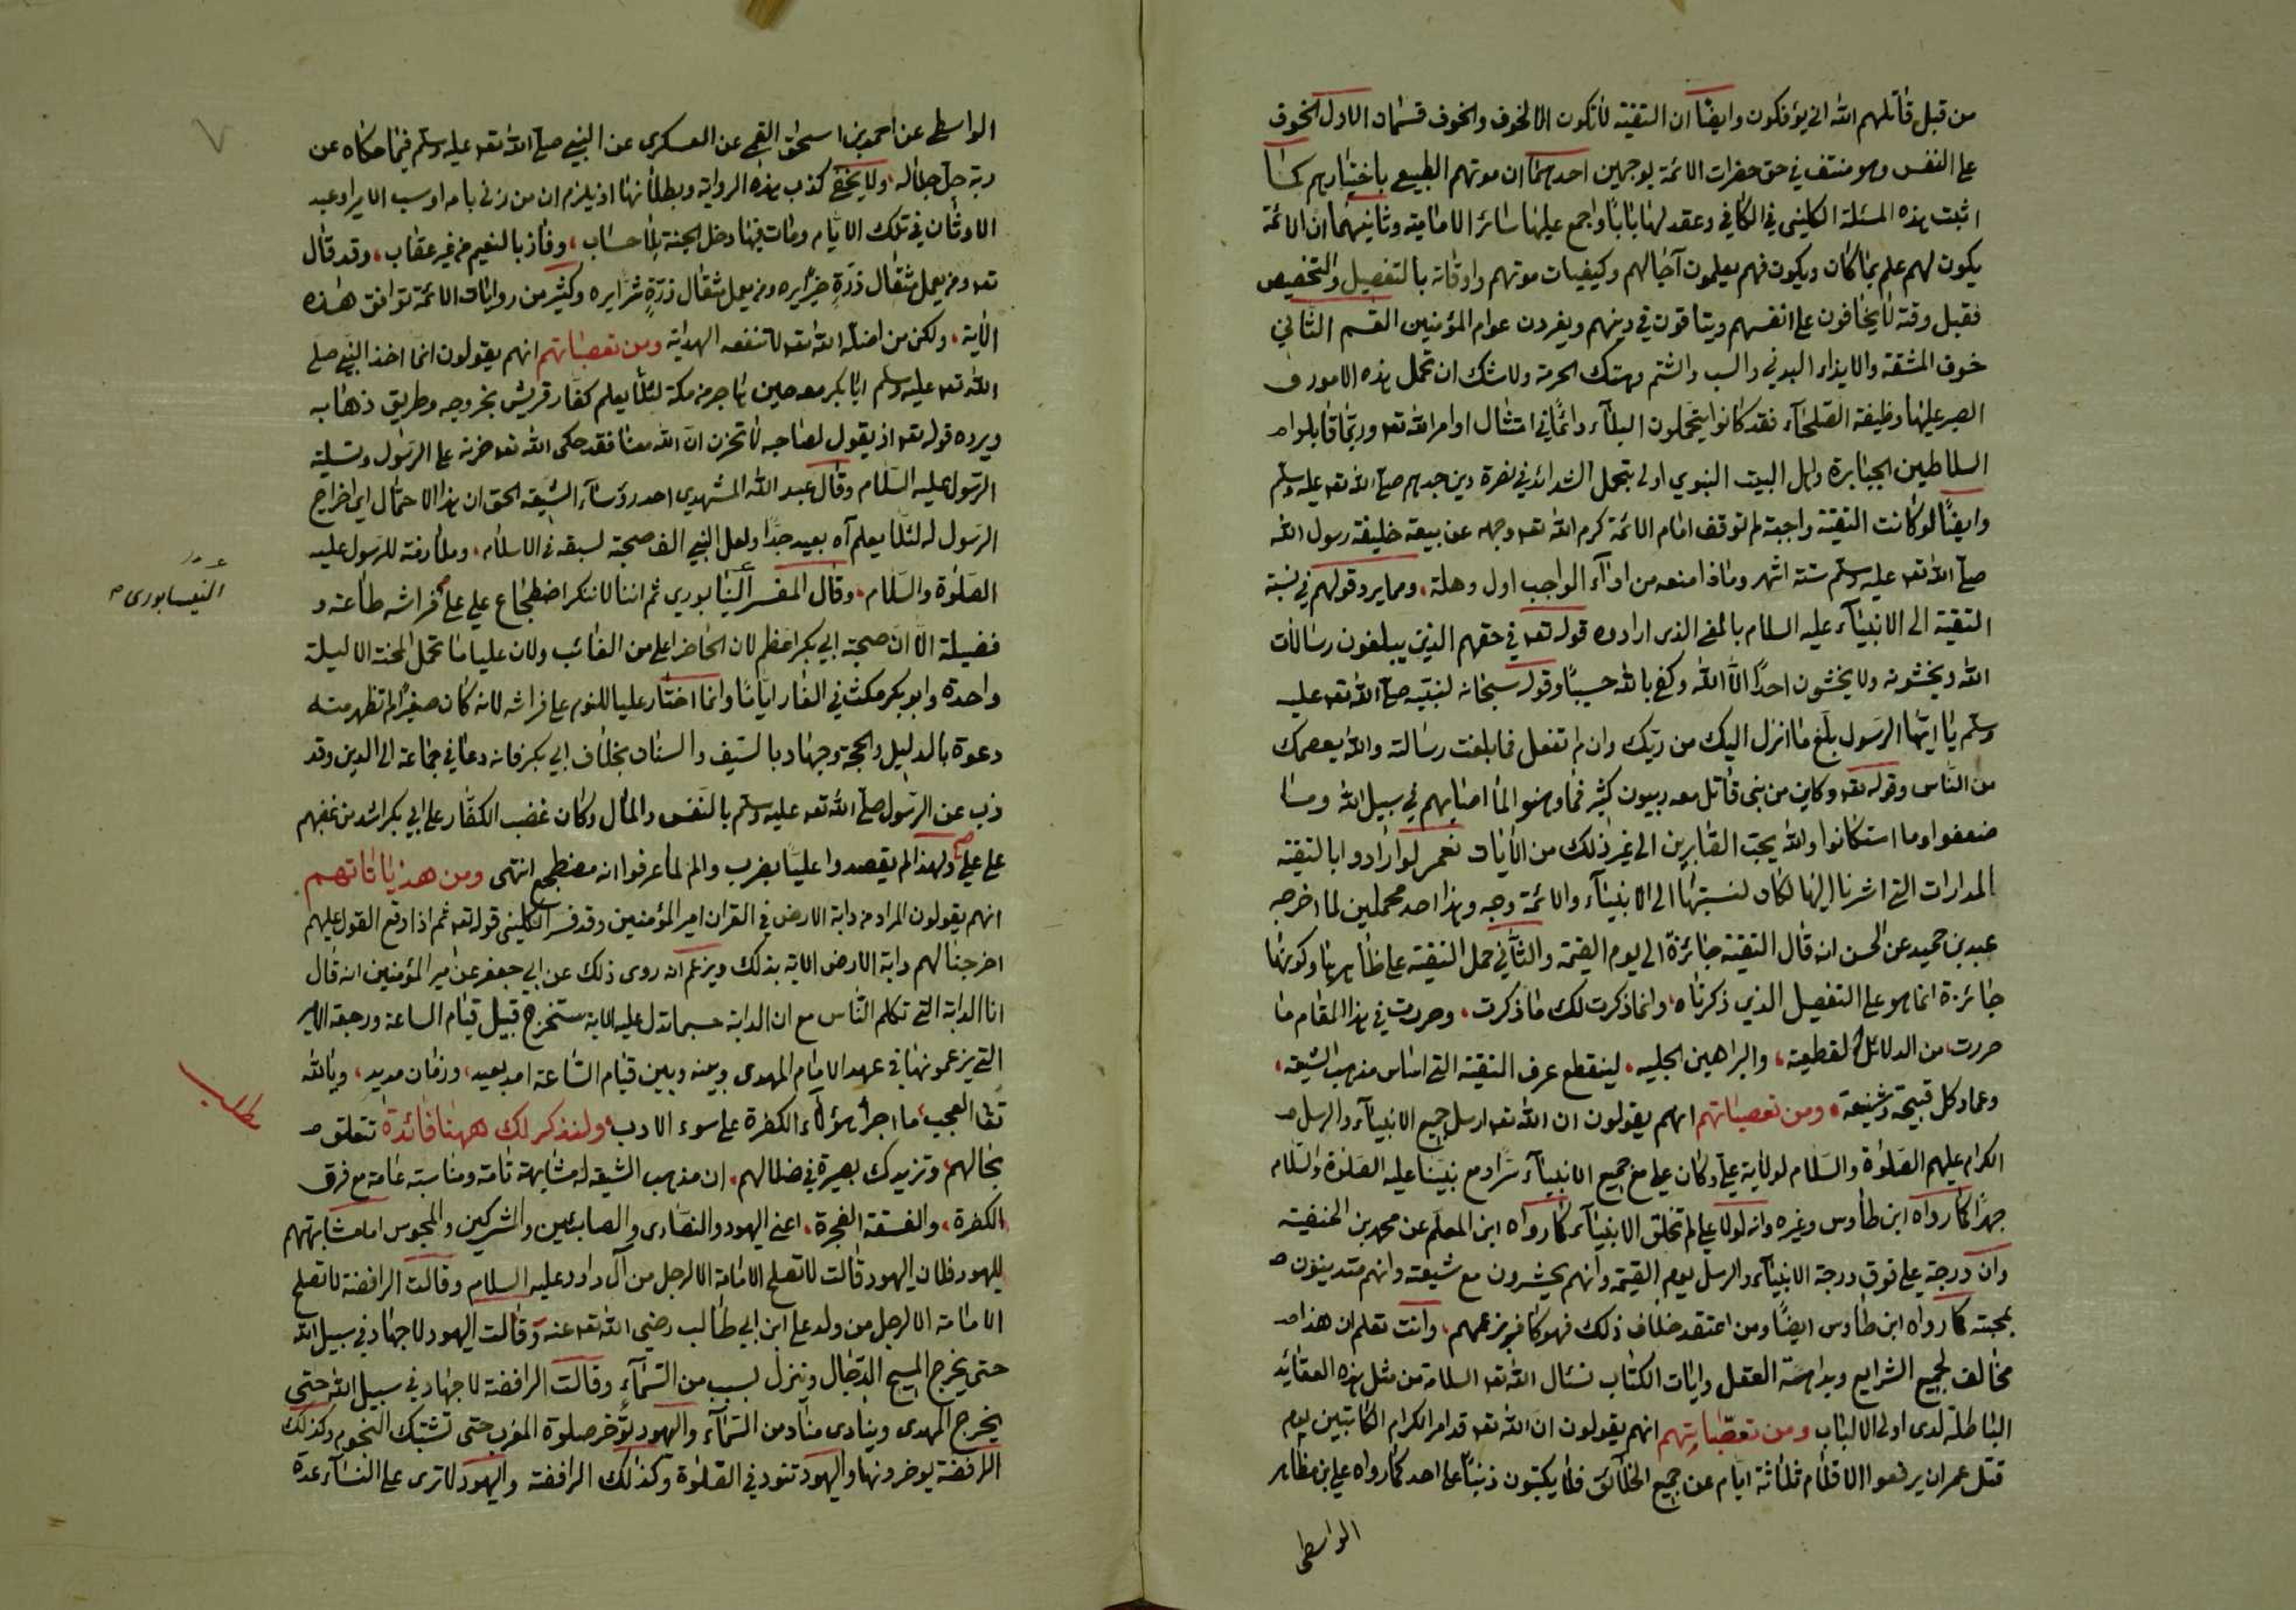 من قبل قاتلهم الله انى يؤفكون وايضا ان التقية لا تكون الا لخوف والخوف قسمان الاول الخوف
على النفس وهو منتف في حق حضرات الائمة بوجهين احدهما ان موتهم الطبيعي باختيارهم كما
اثبت هذه المسئلة الكليني في الكافي وعقد لها بابا واجمع عليها سائر الامامية وثانيهما ان الائمة
يكون لهم علم بما كان ويكون فهم يعلمون آجالهم وكيفيات موتهم واوقاته بالتفصيل والتخصيص
فقبل وقته لا يخافون على انفسهم ويتاقون في دينهم ويغرون عوام المؤمنين القسم الثاني
خوف المشقة والايذاء البدني والسب والشتم وهتك الحرمة ولا شك ان تحمل هذه الامور و
الصبر عليها وظيفة الصلحآء فقد كانوا يتحملون البلآء دائما في امتثال اوامر الله تعه وربما قابلوا
السلاطين الجبابرة واهل البيت النبوي اولى بتحمل الشدائد في نصرة دين جدهم صلى الله تعه عليه وسلم
وايضا لو كانت التقية واجبة لم توقف امام الائمة كرم الله تعه وجهه عن بيعة خليفة رسول الله
صلى الله تعه عليه وسلم ستة اشهر وماذا منعه من ادآء الواجب اول وهلة، ومما يرد قولهم في نسبة
التقية الى الانبيآء عليه السلام بالمعنى الذى ارادوه قوله تعه في حقهم الذين يبلغون رسالات
الله ويخشونه ولا يخشون احدًا الا الله وكفى بالله حسيبًا وقوله سبحانه لنبيه صلى الله تعه عليه
وسلم يا ايها الرسول بلغ ما انزل اليك من ربك وان لم تفعل فما بلغت رسالته والله يعصمك
من الناس وقوله تعه وكاين من نبى قاتل معه ربيون كثير فما وهنوا لما اصابهم في سبيل الله وما
ضعفوا وما استكانوا والله يحب الصابرين الى غير ذلك من الآيات نعم لو ارادوا بالتقية
المدارات التى اشرنا اليها لكان لنسبتها الى الانبيآء والائمة وجه وهذا احد محملين لما اخرجه
عبد بن حميد عن الحسن انه قال التقية جائزة الى يوم القيمة والثاني حمل التقية على ظاهرها وكونها
جائزة انما هو على التفصيل الذي ذكرناه، وانما ذكرت لك ما ذكرت، وحررت في هذا المقام ما
حررت، من الدلائل القطعية، والبراهين الجليه، لينقطع عرق التقية التى اساس مذهب الشيعة،
وعماد كل قبيحة وشنيعة، ومن تعصباتهم انهم يقولون ان الله تعه ارسل جميع الانبيآء والرسل
الكرام عليهم الصلوة والسلام لولاية علي وكان علي مع جميع الانبيآء سرًا ومع نبينا عليه الصلوة والسلام
جهرًا كما رواه ابن طاوس وغيره وانه لولا علي لم تخلق الانبيآء كما رواه ابن المعلم عن محمد بن الحنفية
وان درجة علي فوق درجة الانبيآء والرسل يوم القيمة وانهم يحشرون مع شيعته وانهم متدينون
بمحبته كما رواه ابن طاوس ايضًا ومن اعتقد خلاف ذلك فهو كافر بزعمهم، وانت تعلم ان هذا
مخالف لجميع الشرايع وبداهة العقل وايات الكتاب نسئال الله تعه السلامة من مثل هذه العقائد
الباطلة لدى اولى الالباب ومن تعصباتهم انهم يقولون ان الله تعه قد امر الكرام الكاتبين يوم
قتل عمر ان يرفعوا الاقلام ثلاثة ايام عن جميع الخلائق فلا يكتبون ذنبًا على احد كما رواه علي بن مظاهر
الواسطى
الواسطى عن احمد بن اسحق القمى عن العسكرى عن النبي صلى الله تعه عليه وسلم فيما حكاه عن
ربه جل جلاله، ولا يخفى كذب هذه الرواية وبطلانها اذ يلزم ان من زنى بامه او سب الامير او عبد
الاوثان في تلك الايام ومات فيها دخل الجنة بلا حساب، وفاز بالنعيم من غير عقاب، وقد قال
تعه ومن يعمل مثقال ذرة خيرًا يره ومن يعمل مثقال ذرة شرًا يره وكثير من روايات الائمة توافق هذه
الآية، ولكن من اضله الله تعه لا تنفعه الهداية ومن تعصباتهم انهم يقولون انما اخذ النبي صلى
الله تعه عليه وسلم ابا بكر معه حين هاجر من مكة لئلا يعلم كفار قريش بخروجه وطريق ذهابه
ويرده قوله تعه اذ يقول لصاحبه لا تحزن ان الله معنا فقد حكى الله تعه حزنه على الرسول وتسلية
الرسول عليه السلام وقال عبد الله المشهدى احد رؤسآء الشيعة الحق ان هذا الاحتمال اي اخراج
الرسول له لئلا يعلم آه بعيد جدًا ولعل النبي الف صحبته لسبقه في الاسلام، وملازمته للرسول عليه
الصلوة والسلام، وقال المفسر النيابوري ثم اننا لا ننكر اضطجاع علي على فراشه طاعة و
النيسابورى صح
فضيلة الا ان صحبة ابي بكر اعظم لان الحاضر اعلى من الغائب ولان عليا ما تحمل المحنة الا ليلة
واحدة وابو بكر مكث في الغار ايامًا وانما اختار عليا للنوم على فراشه لانه كان صغيرًا لم تظهر منه
دعوة بالدليل والحجة وجهاد بالسيف والسنان بخلاف ابي بكر فانه دعا في جماعة الى الدين وقد
ذب عن الرسول صلى الله تعه عليه وسلم بالنفس والمال وكان غضب الكفار على ابي بكر اشد من غضبهم
على علي ولهذا لم يقصدوا عليًا بضرب والم لما عرفوا انه مضطجع انتهى ومن هذياناتهم
انهم يقولون المراد من دابة الارض في القران امير المؤمنين وقد فسر الكليني قوله تعه ثم اذا وقع القول عليهم
اخرجنا لهم دابة الارض الاية بذلك ويزعم انه روى ذلك عن ابي جعفر عن امير المؤمنين انه قال
انا الدابة التى تكلم الناس مع ان الدابة حسبما تدل عليه الاية ستخرج قبيل قيام الساعة ورجعة الامير
التي يزعمونها في عهد الامام المهدى وبينه وبين قيام الساعة امد بعيد، وزمان مديد، ويالله
تعا العجب، ما اجرأ هؤلآء الكفرة على سوء الادب، ولنذكر لك ههنا فائدة تتعلق
مطلب
بحالهم، وتزيدك بصيرة في ضلالهم، ان مذهب الشيعة له مشابهة تامة ومناسبة عامة مع فرق
الكفرة، والفسقة الفجرة، اعني اليهود والنصارى والصابئين والمشركين والمجوس اما مشابهتهم
لليهود فلان اليهود قالت لا تصلح الامامة الا لرجل من آل داود عليه السلام وقالت الرافضة لا تصلح
الامامة الا لرجل من ولد على ابن ابي طالب رضى الله تعه عنه وقالت اليهود لا جهاد في سبيل الله
حتى يخرج المسيح الدجال وينزل بسبب من السمآء وقالت الرافضة لا جهاد في سبيل الله حتى
يخرج المهدى وينادى مناد من السمآء واليهود تؤخر صلوة المغرب حتى تشتبك النجوم وكذلك
الرافضة يوخرونها واليهود تنود في الصلوة وكذلك الرافضة واليهود لا ترى على النسآء عدة